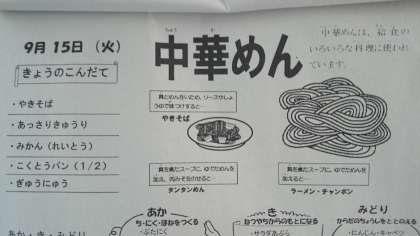 9月15日（火）
きょうのこんだて
・やきそば
・あっさりきゅうり
・みかん（れいとう）
・こくとうパン（1/2）
・ぎゅうにゅう
ちゅう か
中華めん
中華めんは、給食の
いろいろな料理に使われ
ています。
具とめんをいため、ソースやしょ
うゆで味つけすると…
やきそば
具を煮たスープに、ゆでためんを
加え、肉みそをのせると…
タンタンめん
具を煮たスープに、ゆでためんを
加えると…
ラーメン・チャンポン
あか・き・みどり
あか
ち・にく・ほねをつくる
・ぶたにく
き
ねつやちからのもとになる
・サラダあぶら
みどり
からだのちょうしをととのえる
・にんじん・キャベツ